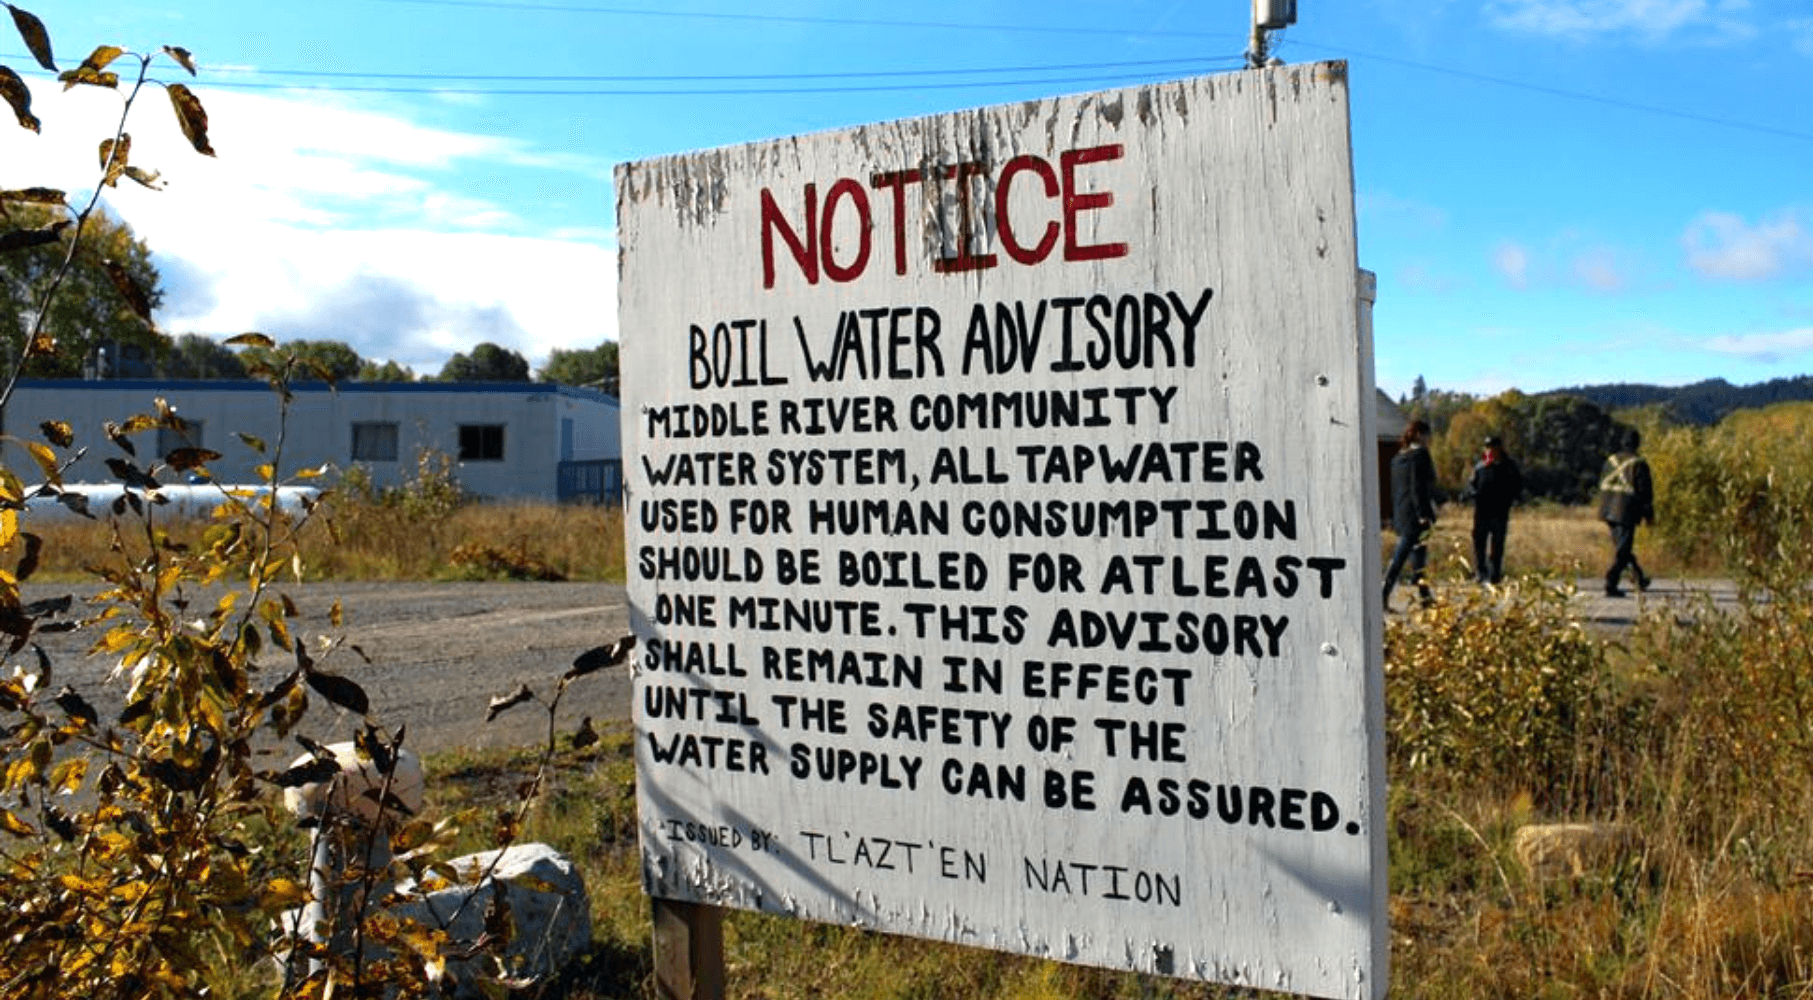 NOTICE
BOIL WATER ADVISORY
MIDDLE RIVER COMMUNITY
WATER SYSTEM, ALL TAPWATER
USED FOR HUMAN CONSUMPTION
SHOULD BE BOILED FOR ATLEAST
ONE MINUTE. THIS ADVISORY
SHALL REMAIN IN EFFECT
UNTIL THE SAFETY OF THE
WATER SUPPLY CAN BE ASSURED.
ISSUED BY: TL'AZT'EN NATION